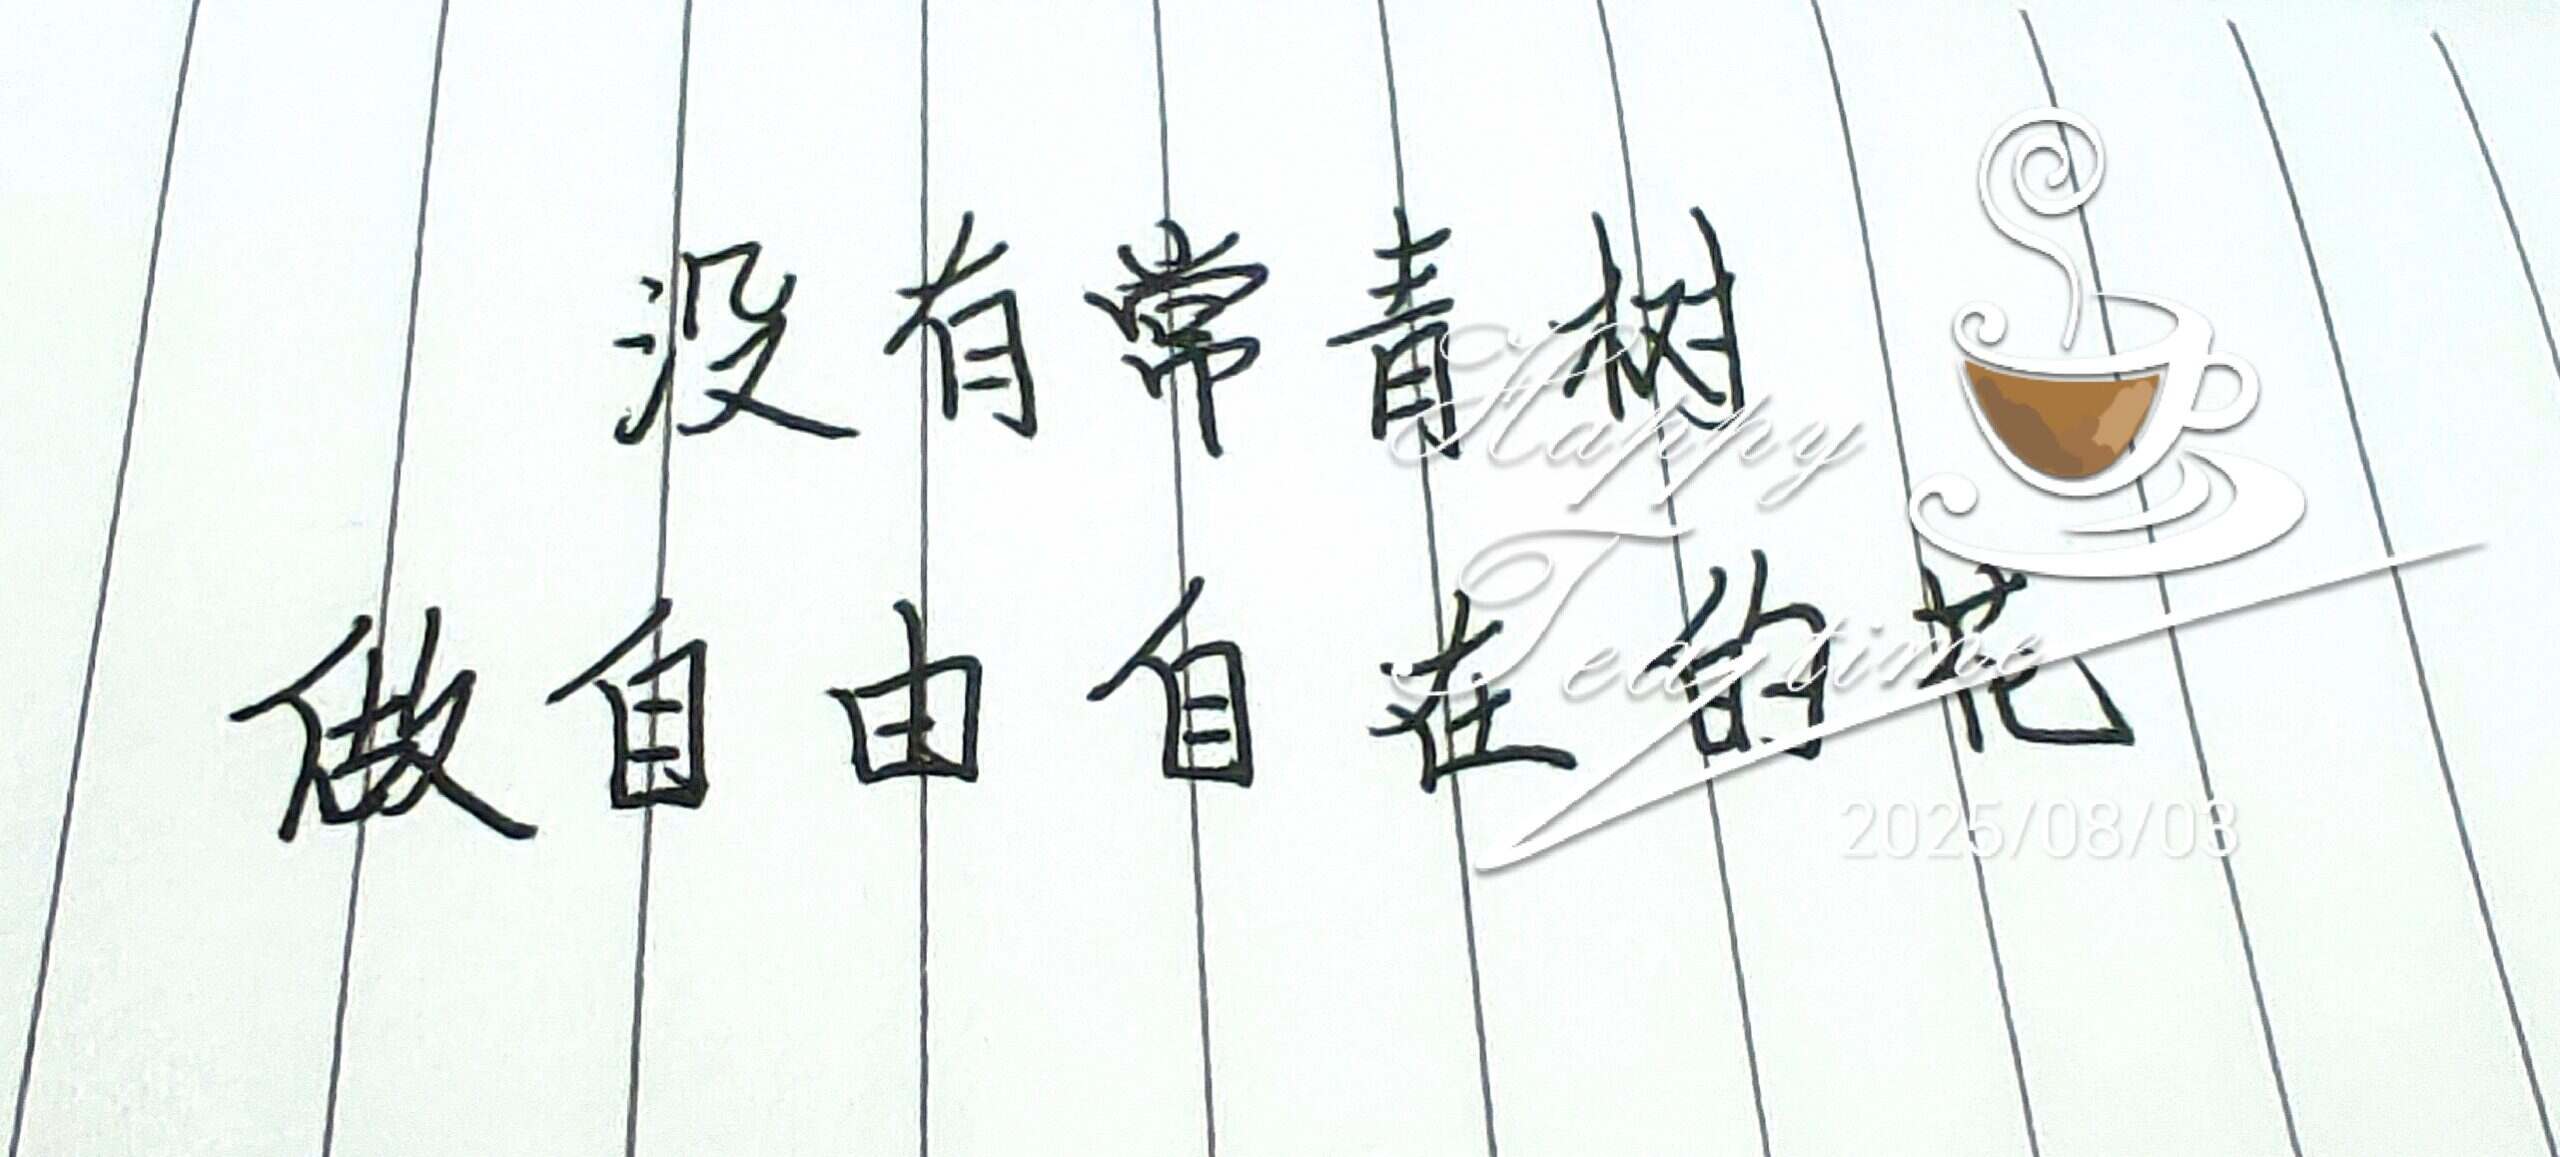 没有常青树
做自由自在的花
Happy
Teaytime
2025/08/03